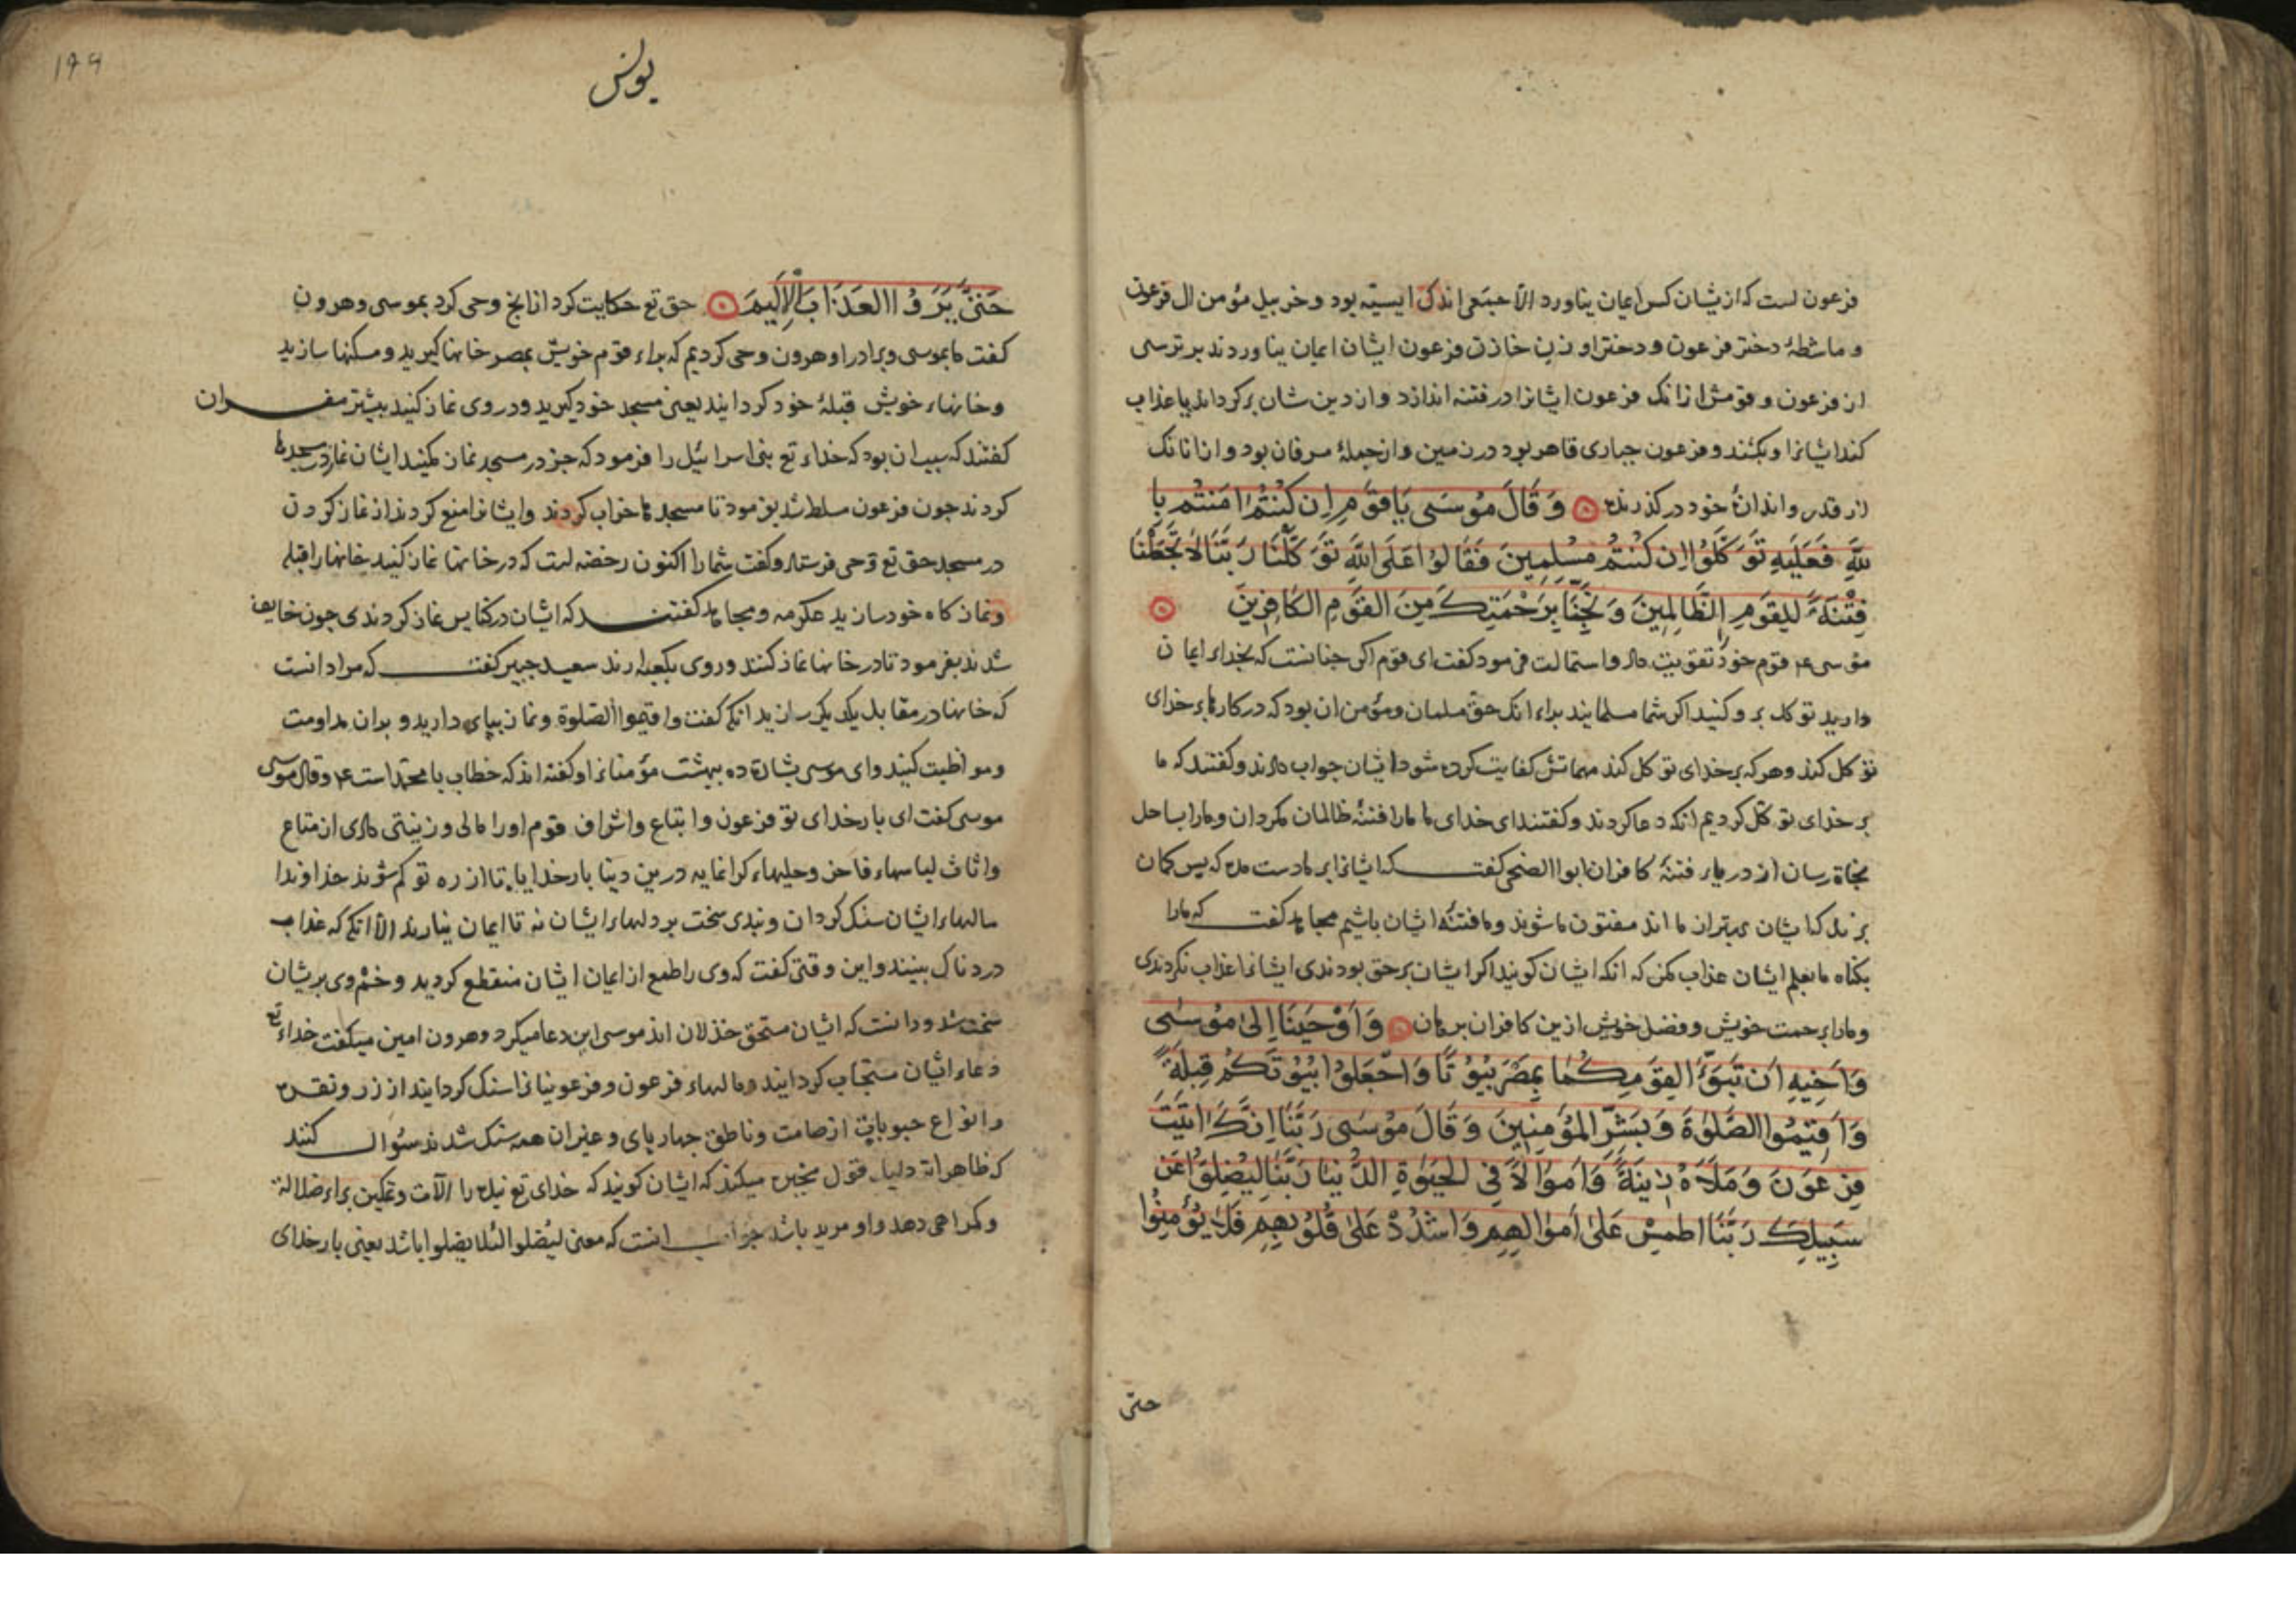 فرعون است که ازیشان کس ایمان نیاورد الا جمعی اندک ایسیّه بود و خربیل مؤمن ال فرعون
و ماشطهٔ دختر فرعون و دختر او و زن خازن فرعون ایشان ایمان نیاوردند بر ترسی
از فرعون و قومش ازانک فرعون ایشانرا در فتنه اندازد و از دین شان برکرداند یا عذاب
کند ایشانرا و بکشد و فرعون جباری قاهر بود در زمین و از جملهٔ مسرفان بود و ازانانک
از قدر و اندازهٔ خود در کذرند وَقَالَ مُوسَى يَا قَوْمِ اِن كُنْتُمْ امَنْتُم بِا
للّهِ فَعَلَيْهِ تَوَكَّلُوا اِن كُنْتُم مُسْلِمِينَ فَقَالُوا عَلَى اللّهِ تَوَكَّلْنَا رَبَّنَا لَا تَجْعَلْنَا
فِتْنَةً لِلقَوْمِ الظَّالِمِينَ وَنَجِّنَا بِرَحْمَتِكَ مِنَ القَوْمِ الكَافِرِينَ
موسی ع‌م قوم خود را تقویت داد و استمالت فرمود کفت ای قوم اکر چنانست که بخدای ایمان
دارید توکل بر و کنید اکر شما مسلمانید برای انک حق مسلمان و مؤمن ان بود که در کارها بر خدای
توکل کند و هر که بر خدای توکل کند مهماتش کفایت کرده شود ایشان جواب دادند و کفتند که ما
بر خدای توکل کردیم انکه دعا کردند و کفتند ای خدای ما ما را فتنهٔ ظالمان مکردان و ما را بساحل
نجاة رسان از دریای فتنهٔ کافران ابو الضحی کفت که ایشانرا بر ما دست مده که پس کمان
برند که ایشان بهتر از ما اند مفتون ما شوند و ما فتنهٔ ایشان باشیم مجاهد کفت که ما را
بکناه ما بعلم ایشان عذاب مکن که انکه ایشان کویند اکر ایشان بر حق بودندی ایشانرا عذاب نکردندی
و ما را برحمت خویش و فضل خویش ازین کافران برهان وَاَوْحَيْنَا اِلىٰ مُوسٰى
وَاَخِيهِ اَن تَبَوَّءَا لِقَوْمِكُمَا بِمِصْرَ بُيُوتًا وَاجْعَلُوا بُيُوتَكُمْ قِبْلَةً
وَاَقِيمُوا الصَّلوٰةَ وَبَشِّرِ المُؤْمِنِينَ وَقَالَ مُوسَى رَبَّنَا اِنَّكَ اتَيْتَ
فِرْعَوْنَ وَمَلَاَهُ زِينَةً وَاَمْوَالًا فِي الحَيوٰةِ الدُّنْيَا رَبَّنَا لِيُضِلُّوا عَن
سَبِيلِكَ رَبَّنَا اطْمِسْ عَلىٰ اَمْوَالِهِمْ وَاشْدُدْ عَلىٰ قُلُوبِهِمْ فَلَا يُؤْمِنُوا
حتی
یونس
۱۹۹
حَتّىٰ يَرَوُا العَذَابَ الاَلِيمَ حق تع حکایت کرد ازانچ وحی کرد بموسی و هرون
کفت ما بموسی و برادر او هرون وحی کردیم که برای قوم خویش بمصر خانها کیرید و مسکنها سازید
و خانهای خویش قبلهٔ خود کردانید یعنی مسجد خود کیرید و در وی نماز کنید بیشتر مفسران
کفتند که سبب ان بود که خدای تع بنی اسرائیل را فرمود که جز در مسجد نماز مکنید ایشان نماز در مسجدها
کردند چون فرعون مسلط شد بفرمود تا مسجدها خراب کردند و ایشانرا منع کردند از نماز کردن
در مسجد حق تع وحی فرستاد و کفت شما را اکنون رخصه است که در خانها نماز کنید خانها را قبله
و نماز کاه خود سازید عکرمه و مجاهد کفتند که ایشان در کنایس نماز کردندی چون خایف
شدند بفرمود تا در خانها نماز کنند و روی بکعبه ارند سعید جبیر کفت که مراد انست
که خانها در مقابل یکدیکر سازید انکه کفت و اقیموا الصلوة و نماز بپای دارید و بران مداومت
و مواظبت کنید و ای موسی بشارة ده ببهشت مؤمنانرا و کفته اند که خطاب با محمد است ع‌م و قال موسی
موسی کفت ای بار خدای تو فرعون و اتباع و اشراف قوم او را مالی و زینتی دادی از متاع
و اثاث لباسهای فاخر و حلیهای کرانمایه درین دنیا بار خدایا تا از ره تو کم شوند خداوندا
مالهای ایشان سنک کردان و بندی سخت بر دلهای ایشان نه تا ایمان نیارند الا انکه که عذاب
دردناک بینند و این وقتی کفت که وی را طمع از ایمان ایشان منقطع کردید و خشم وی بریشان
سخت شد و دانست که ایشان مستحق خذلان اند موسی این دعا میکرد و هرون امین میکفت خدای تع
دعای ایشان مستجاب کردانید و مالهای فرعون و فرعونیانرا سنک کردانید از زر و نقره
و انواع حبوبات از صامت و ناطق چهار پای و غیر ان همه سنک شدند سئوال کنند
که ظاهر ایة دلیل قول مجبره میکند که ایشان کویند که خدای تع بنده را الات و تمکین برای ضلالة
و کمراهی دهد و او مرید باشد جواب انست که معنی لیضلوا لئلا یضلوا باشد یعنی بار خدای